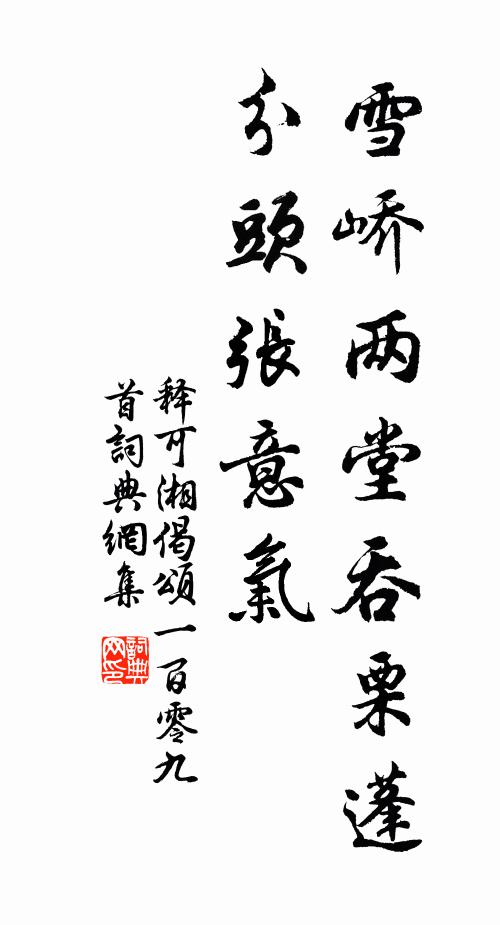 雪峤两堂吞栗蓬
分頭張意氣
释可湘偈頌一百零九
首詞典網集
詞典
网印